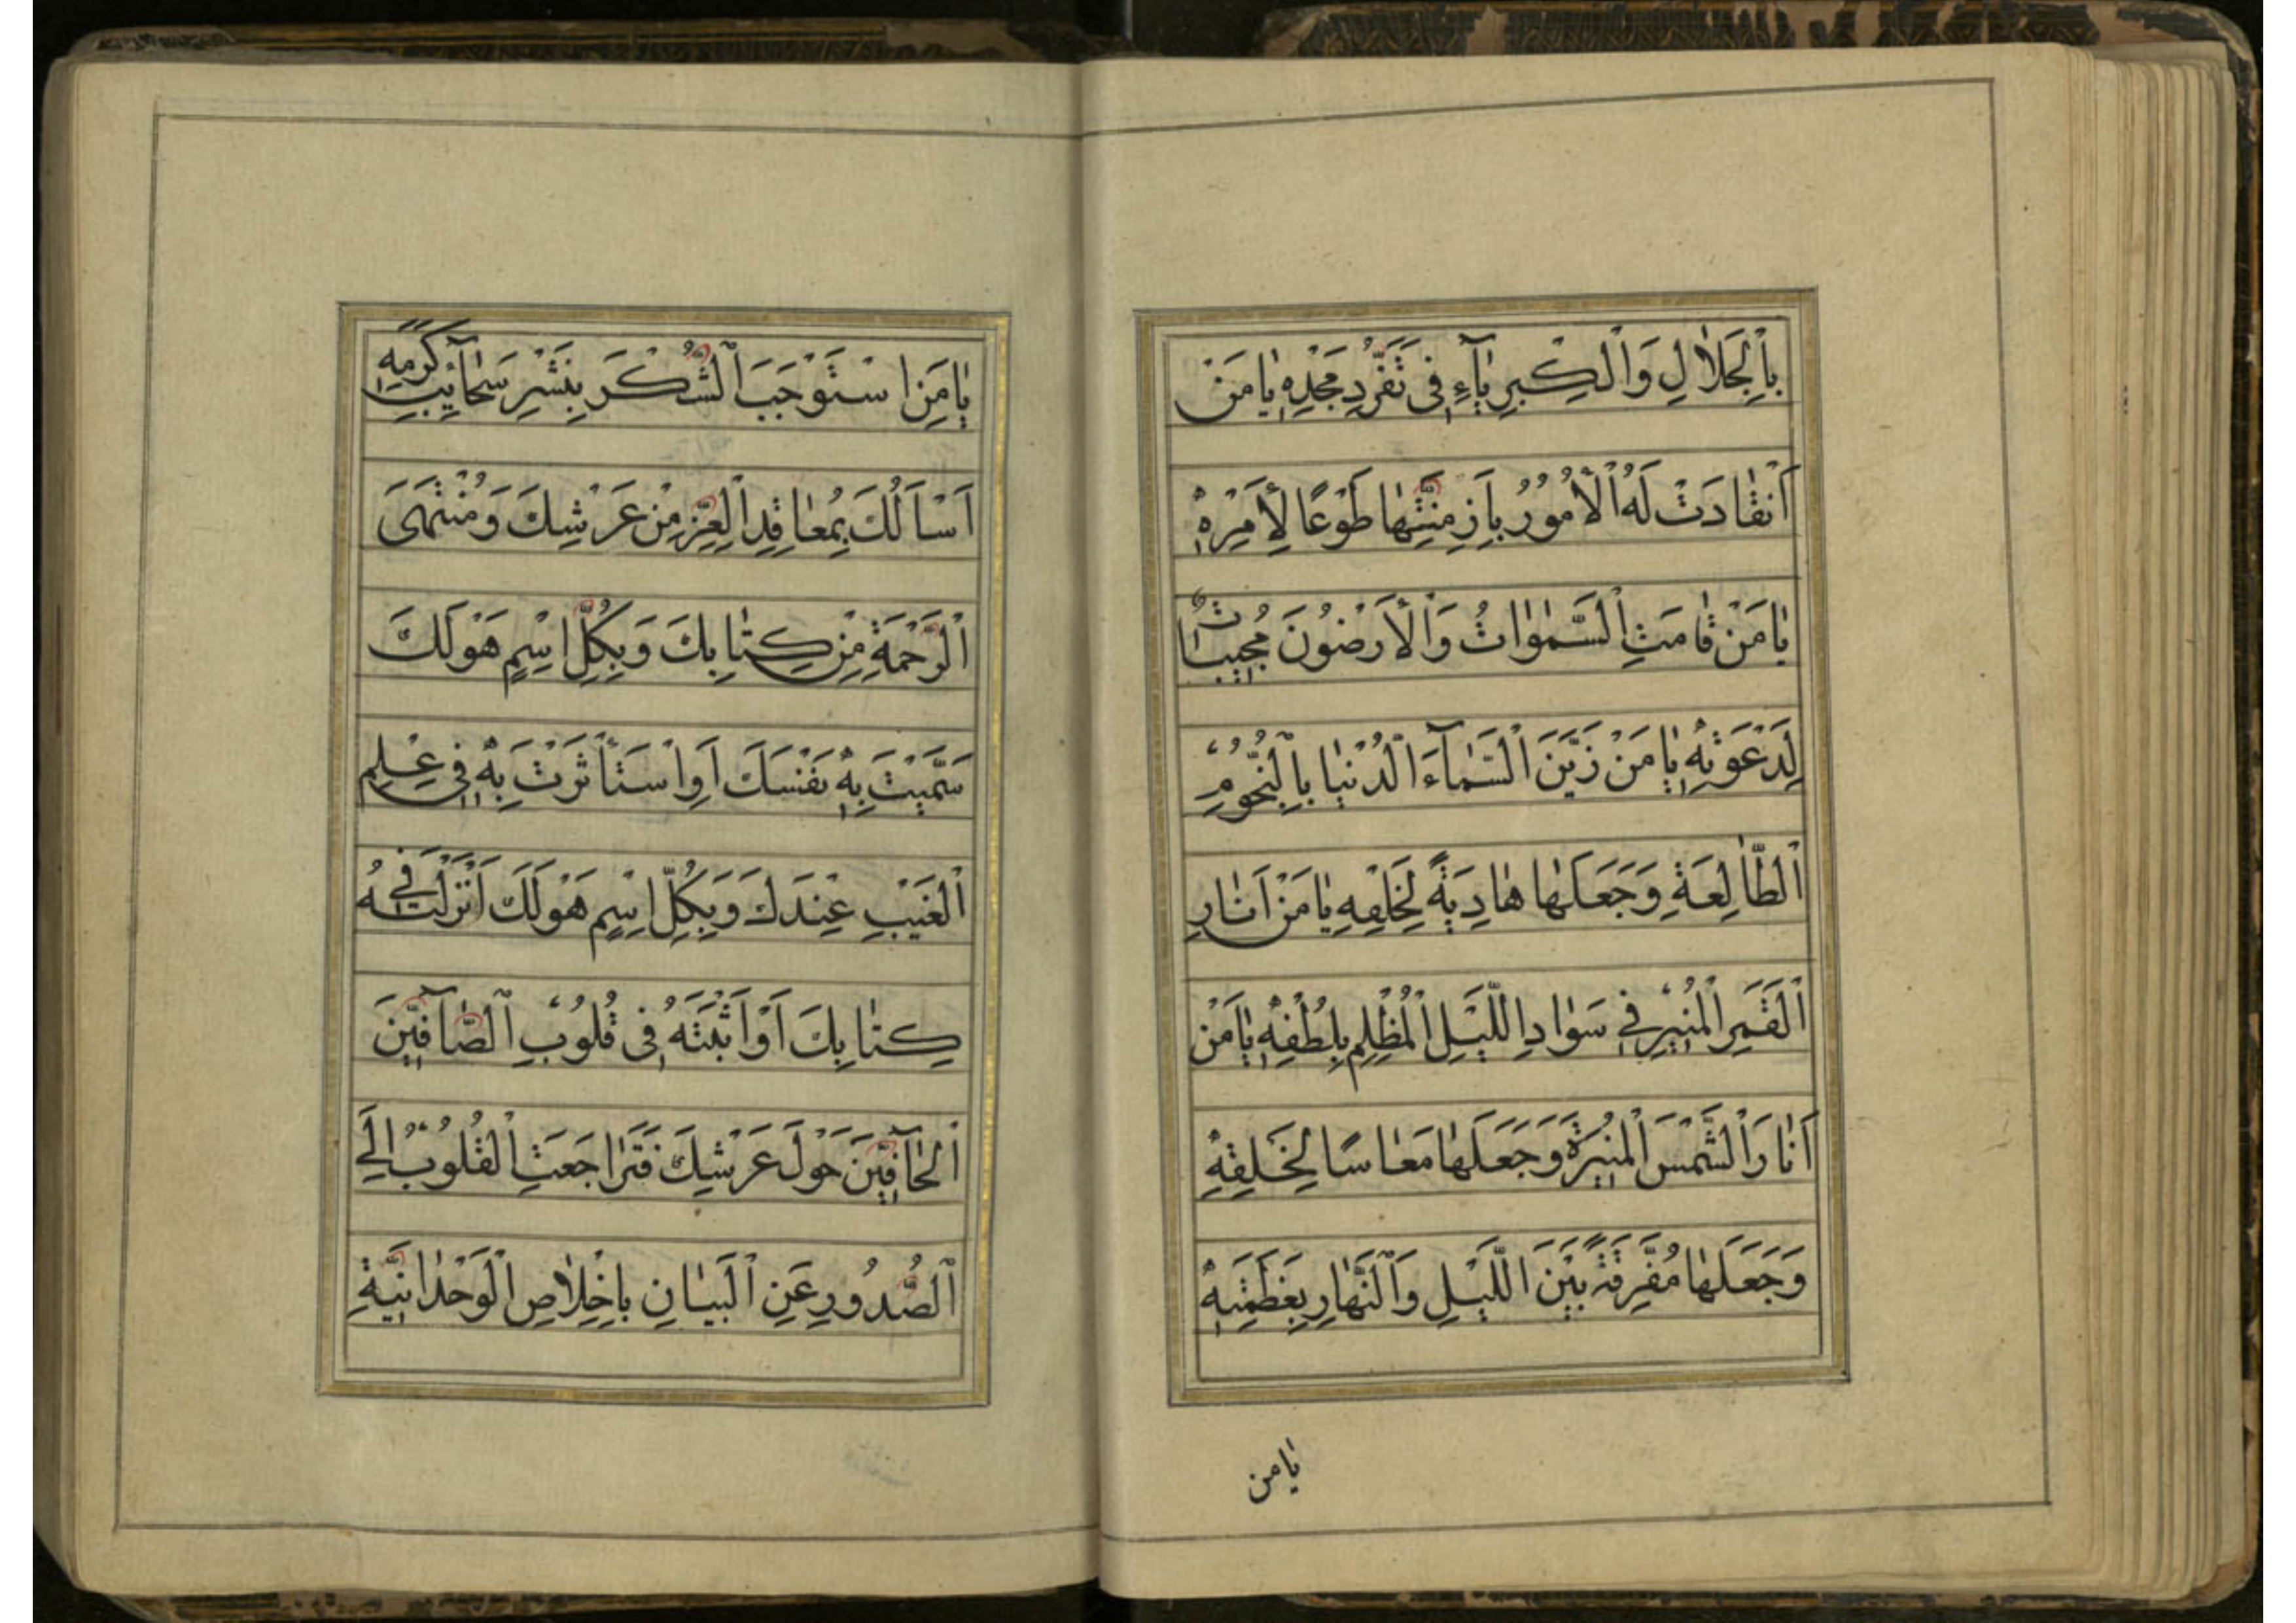 بِالْجَلَالِ وَالْكِبْرِيَاءِ فِي تَفَرُّدِ مَجْدِهِ يَا مَنْ
اَنْقَادَتْ لَهُ الْأُمُورُ بِاَزِمَّتِهَا طَوْعًا لِأَمْرِهِ
يَا مَنْ قَامَتِ السَّمَوَاتُ وَالْأَرَضُونَ مُجِيبَاتٌ
لِدَعْوَتِهِ يَا مَنْ زَيَّنَ السَّمَآءَ الدُّنْيَا بِالنُّجُومِ
الطَّالِعَةِ وَجَعَلَهَا هَادِيَةً لِخَلْقِهِ يَا مَنْ اَنَارَ
الْقَمَرِ الْمُنِيرِ فِي سَوَادِ اللَّيْلِ الْمُظْلِمِ بِلُطْفِهِ يَا مَنْ
اَنَارَ الشَّمْسَ الْمُنِيرَةَ وَجَعَلَهَا مَعَاسًا لِخَلْقِهِ
وَجَعَلَهَا مُفَرِّقَةً بَيْنَ اللَّيْلِ وَالنَّهَارِ بِعَظَمَتِهِ
يَا من
يَا مَنِ اسْتَوْجَبَ الشُّكْرَ بِنَشْرِ سَحَآئِبِ كَرَمِهِ
اَسْاَلُكَ بِمَعَاقِدِ الْعِزِّ مِنْ عَرْشِكَ وَمُنْتَهَى
الرَّحْمَةِ مِنْ كِتَابِكَ وَبِكُلِّ اسْمٍ هَوُلَكَ
سَمَّيْتَ بِهِ نَفْسَكَ اَوِ اسْتَأْثَرْتَ بِهِ فِي عِلْمِ
الْغَيْبِ عِنْدَكَ وَبِكُلِّ اسْمٍ هَوُلَكَ اَنْزَلْتَهُ فِي
كِتَابِكَ اَوْ اَثْبَتَّهُ فِي قُلُوبِ الصَّآفِّينَ
الْحَآفِّينَ حَوْلَ عَرْشِكَ فَتَرَاجَعَتِ الْقُلُوبُ اِلَى
الصُّدُورِ عَنِ الْبَيَانِ بِاِخْلَاصِ الْوَحْدَانِيَّةِ